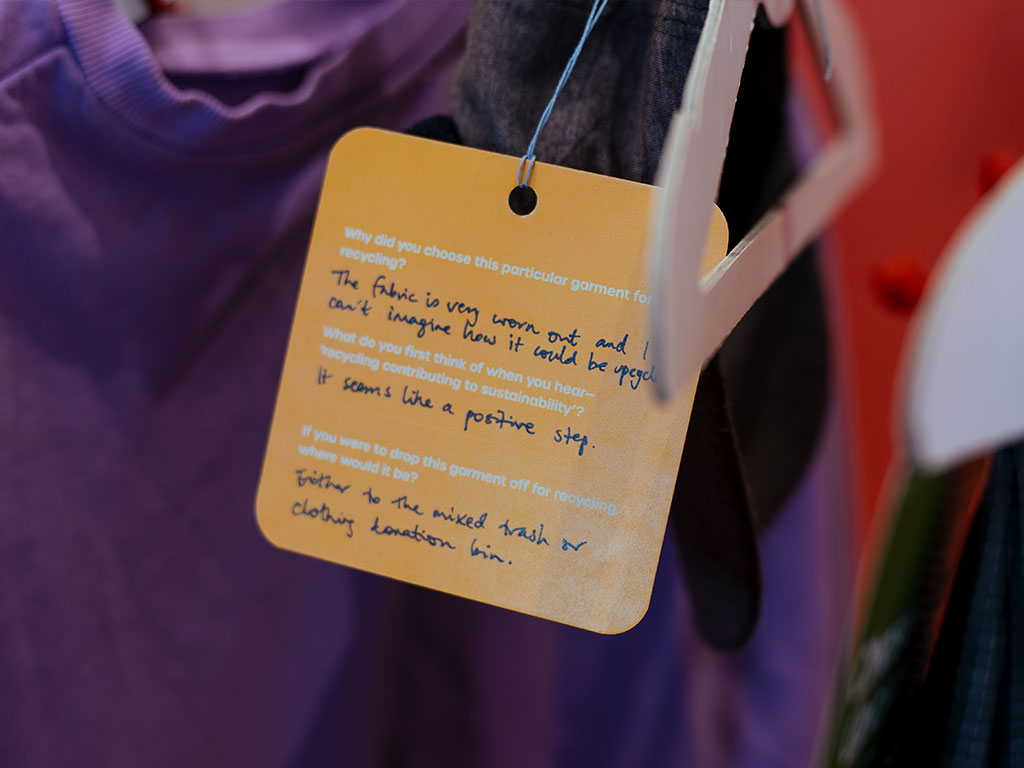 Why did you choose this particular garment for
recycling?
The fabric is very worn out and I
can't imagine how it could be upcycl
What do you first think of when you hear—
'recycling contributing to sustainability'?
It seems like a positive step.
If you were to drop this garment off for recycling,
where would it be?
Either to the mixed trash or
clothing donation bin.